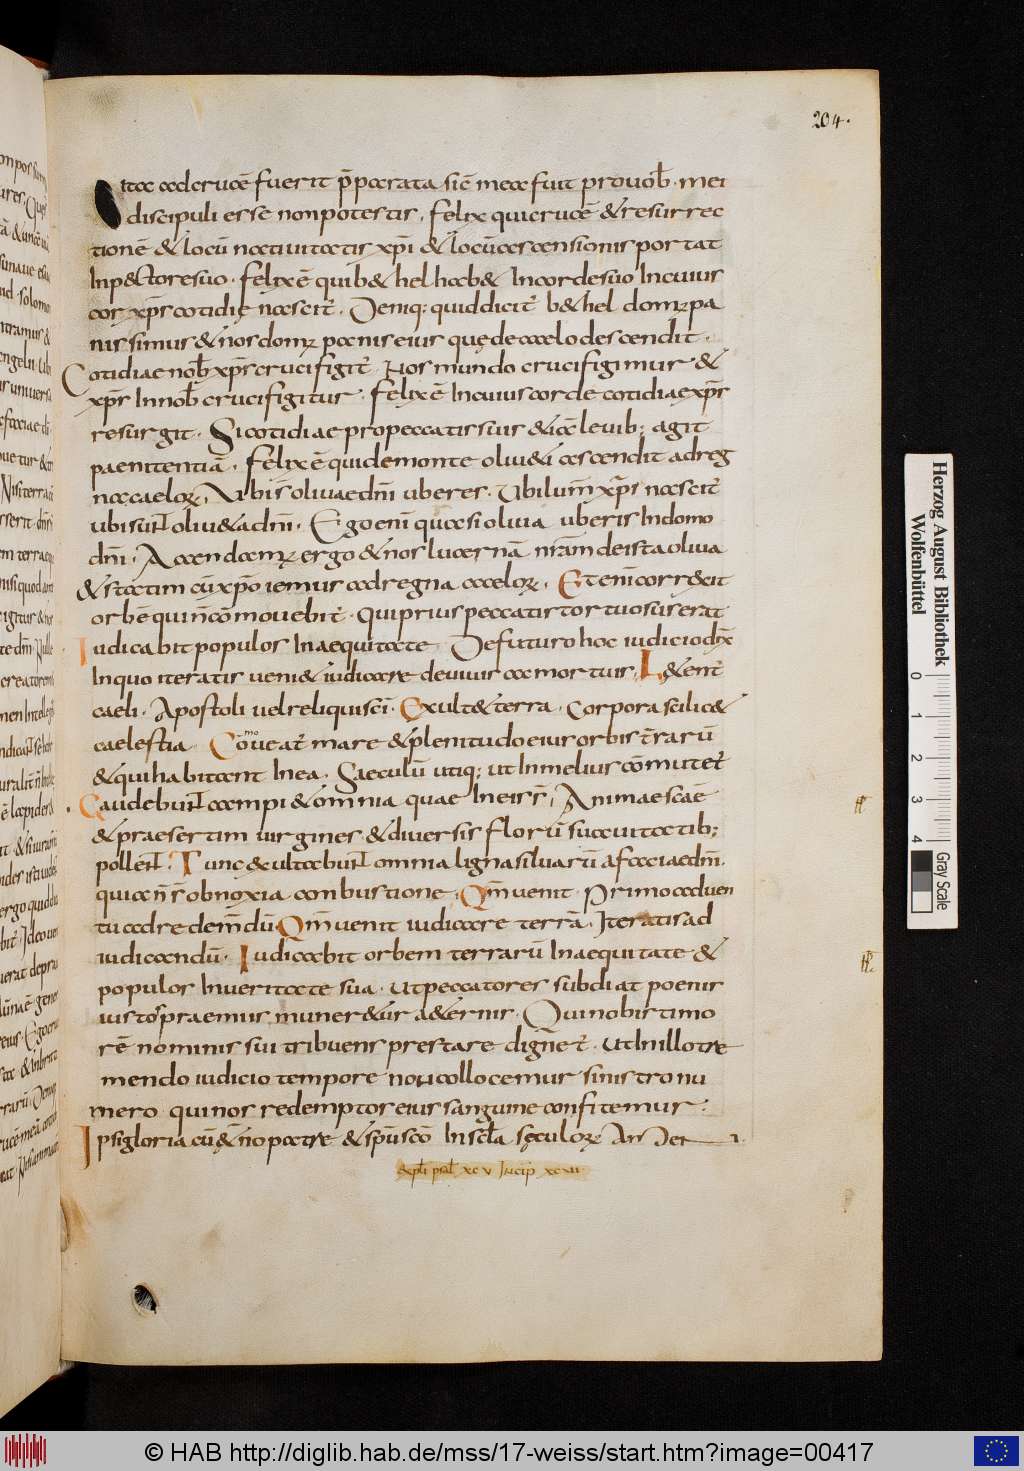 204.
ita ad crucē fuerit p̄parata siē mea fuit pro vob̄. mei
discipuli esse non potestis. felix qui crucē & resurrec
tionē & locū nativitatis xp̄i & locū ascensionis portat
In p&ctore suo. felix ē qui b&hel hab& In corde suo In cuius
cor xp̄s cotidię nascit̄. Deniq: quid dicit̄ b&hel domꝫ pa
nis simus & nos domꝫ panis eius quę de caelo descendit.
Cotidiae nob̄ xp̄s crucifigit̄. Nos mundo crucifigimur &
xp̄s In nob̄ crucifigitur. felix ē In cuius corde cotidiae xp̄s
resurgit. Si cotidiae pro peccatis suis & iā levib; agit
paenitentiā. felix ē qui de monte oliu&i ascendit ad reg
na caelorꝫ. Ubi s̄ olivae dn̄i uberes. Ubi lum̄ xp̄s nascit̄
ubi sun̄t oliu&a dn̄i. Ego enī quasi oliva uberis In domo
dn̄i. Accendamꝫ ergo & nos lucernā nr̄am de ista oliva
& statim cū xp̄o iemus ad regna caelorꝫ. Et enī corr&xit
orbē qui n̄ cōmovebit̄. Qui prius peccatis tortuosus erat
Iudicabit populos In aequitate. De futuro hoc iudicio dix̄
In quo iteratis veni& iudicare de vivis ac mortuis. L&ent̄
caeli. Apostoli vel reliqui scī. Exult&terra. Corpora scilic&
caelestia. Cōmoveat̄ mare & plenitudo eius orbis t̄rarū
& qui habitant In ea. Saeculū utiq; ut In melius cōmutet̄
Gaudebun̄t campi & omnia quae In eis s̄. Animae scāe
& praesertim virgines & diversis florū suavitatib;
pollen̄t. Tunc exultabun̄t omnia ligna silvarū a facciae dn̄i.
quia n̄ s̄ obnoxia conbustione. Qm̄ venit. Primo adven
tu ad redem̄dū. Qm̄ venit iudicare terrā. Iteratis ad
iudicandū. Iudicabit orbem terrarū In aequitate &
populos In veritate sua. Ut peccatores subdiat poenis
iustos praemiis muner&ur a&ernis. Qui nobis timo
rē nominis sui tribuens prestare dign&̄. Ut In illo tre
mendo iudicio tempore non collocemur sinistro nu
mero qui nos redemptos eius sanguine confitemur.
Ipsi gloria cū &n̄o patre & sp̄u scō In scl̄a sęculorꝫ amen
expl̄i psal̄ xcv Incip̄ xcvi
Herzog August Bibliothek
Wolfenbüttel
0 1 2 3 4
Gray Scale
© HAB http://diglib.hab.de/mss/17-weiss/start.htm?image=00417